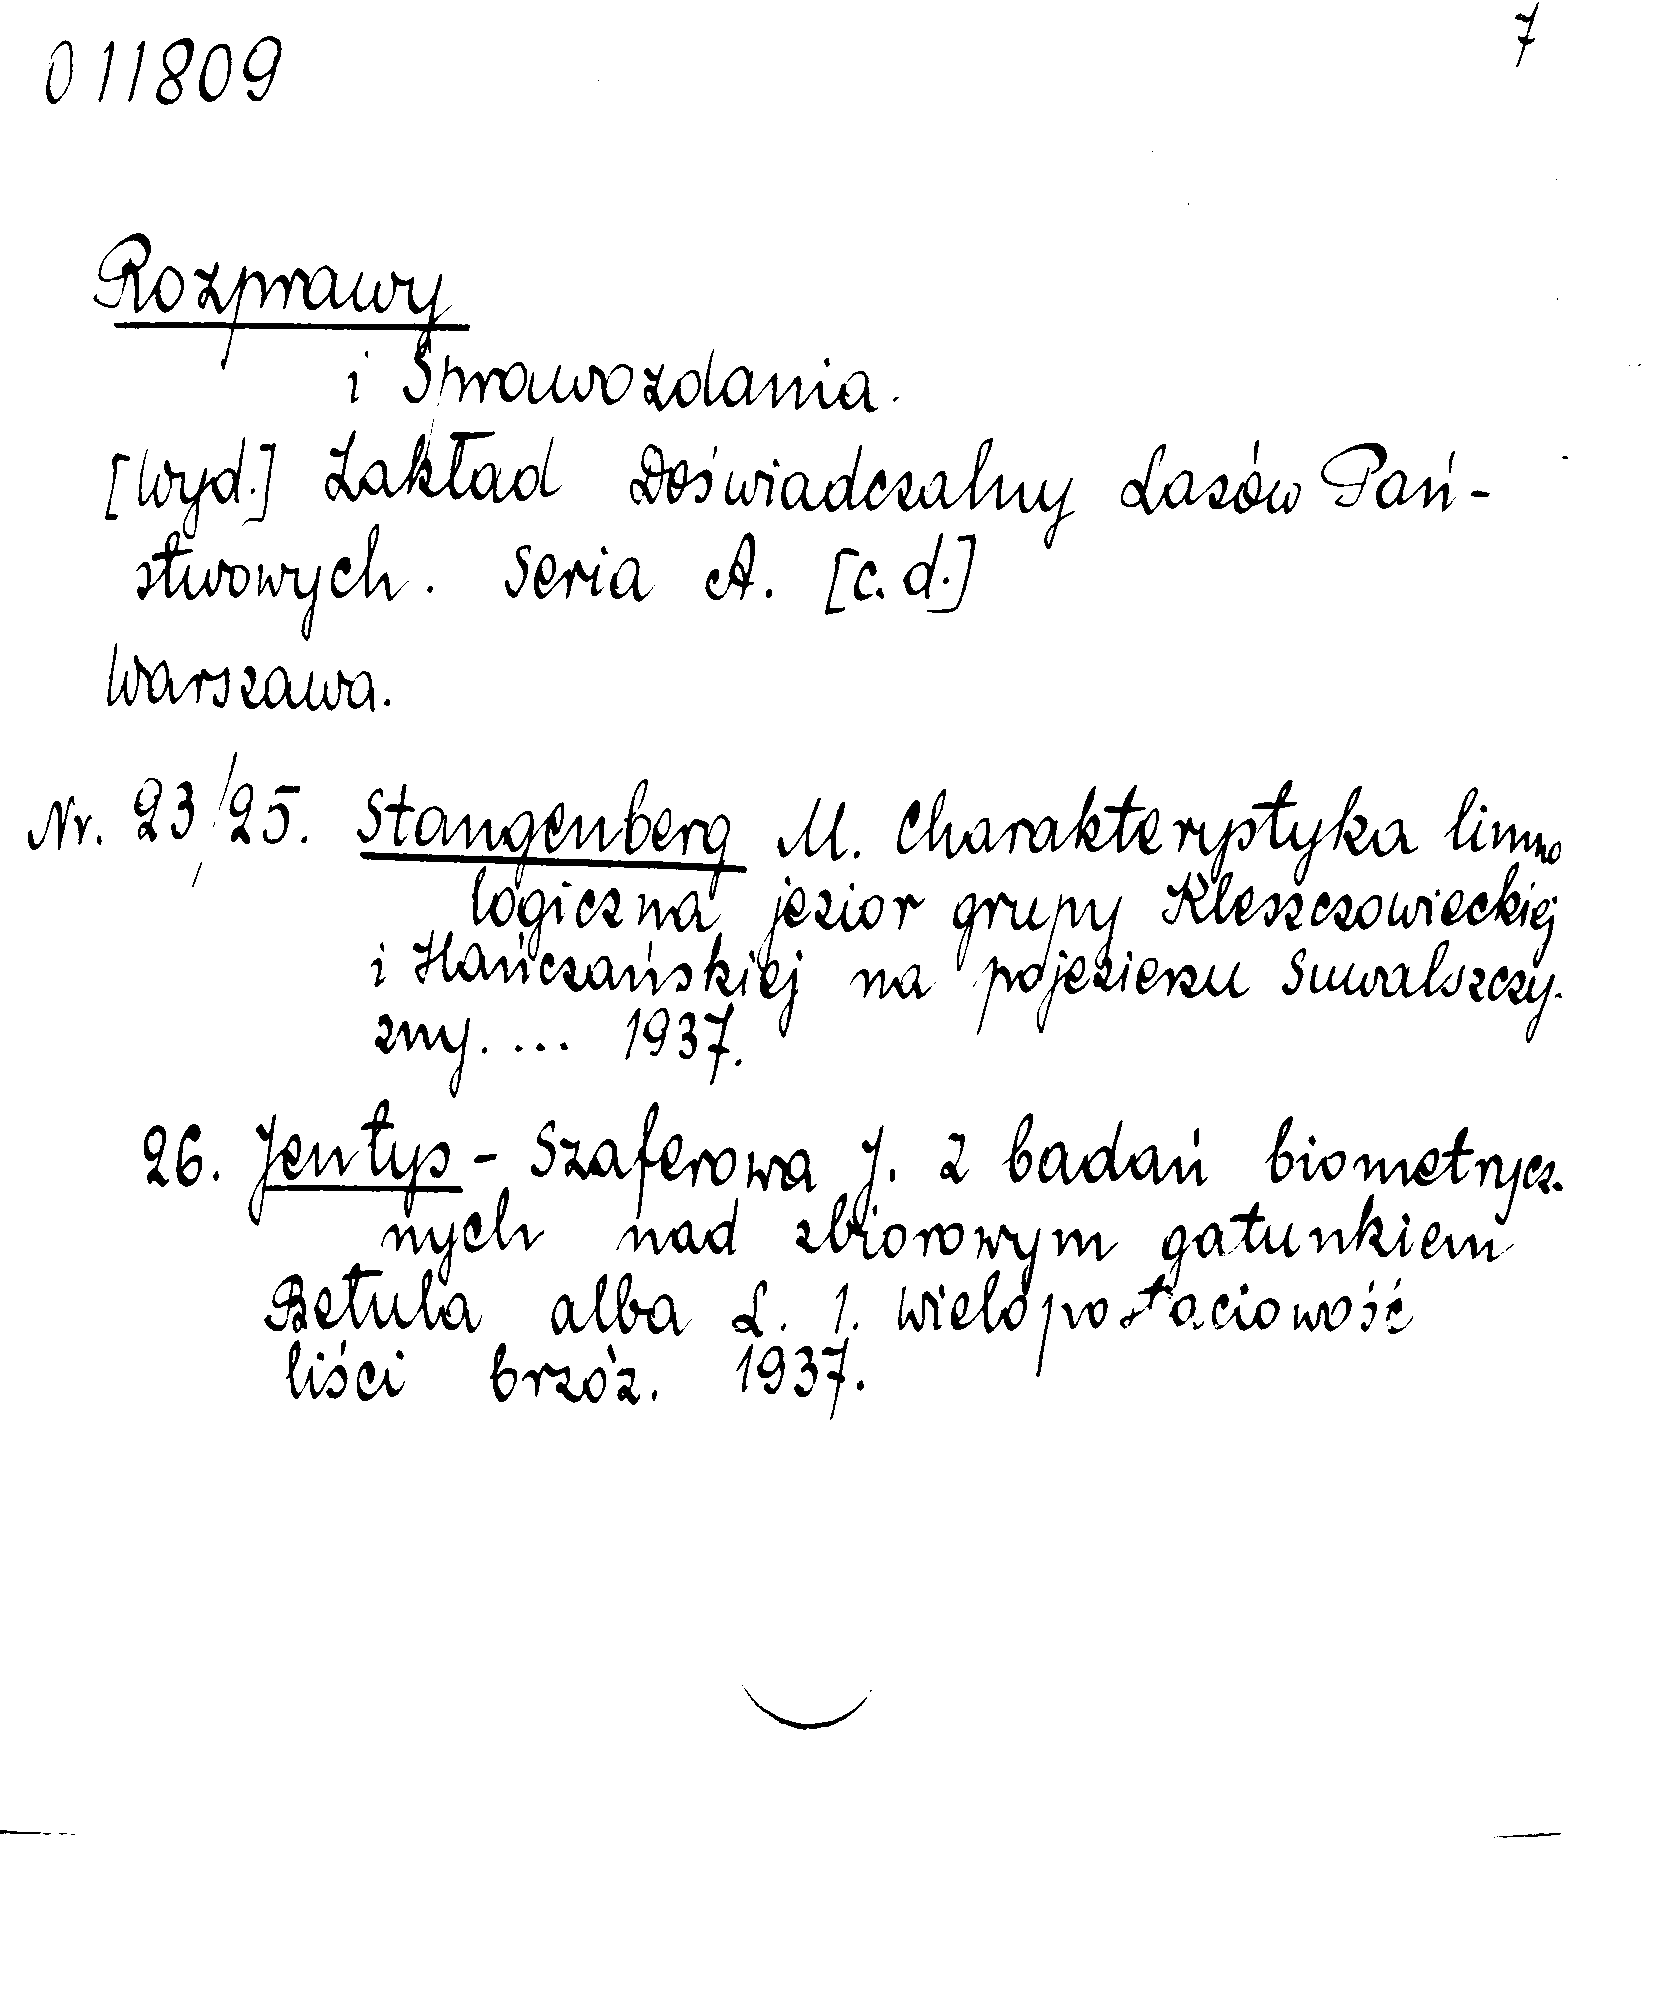 011809
7
Rozprawy
i Sprawozdania.
[Wyd.] Zakład Doświadczalny Lasów Pań-
stwowych. Seria A. [c.d.]
Warszawa.
Nr. 23/25. Stangenberg M. Charakterystyka limno
logiczna jezior grupy Kleszczowieckiej
i Hańczańskiej na pojezierzu Suwalszczy-
zny. ... 1937.
26. Jentys-Szaferowa J. Z badań biometrycz-
nych nad zbiorowym gatunkiem
Betula alba L. 1. Wielopostaciowość
liści brzóz. 1937.